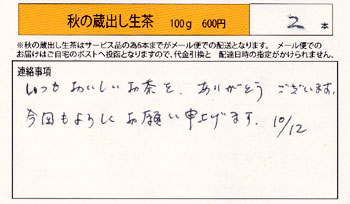 秋の蔵出し生茶 100g 600円 2 本
※秋の蔵出し生茶はサービス品の為6本までがメール便での配送となります。 メール便での
お届けはご自宅のポストへ投函となりますので、代金引換と 配達日時の指定がかけられません。
連絡事項
いつもおいしいお茶を、ありがとうございます。
今回もよろしくお願い申上げます。 10/12